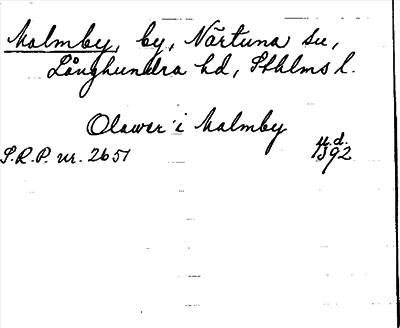 Malmby, by, Närtuna sn,
Långhundra hd, Sthlms l.
Olawer i Malmby
S.R.P. nr. 2651 u.d. 1392